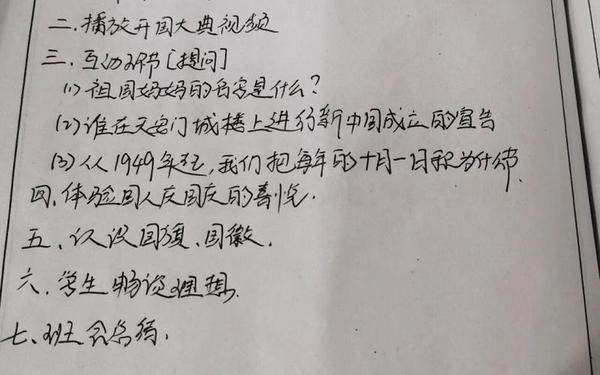 二.播放开国大典视频
三.互动环节[提问]
(1)祖国妈妈的名字是什么?
(2)谁在天安门城楼上进行新中国成立的宣告
(3)从1949年起,我们把每年的十月一日称为什么节.
四、体验国人庆国庆的喜悦.
五、认识国旗、国徽.
六.学生畅谈理想.
七、班会总结.